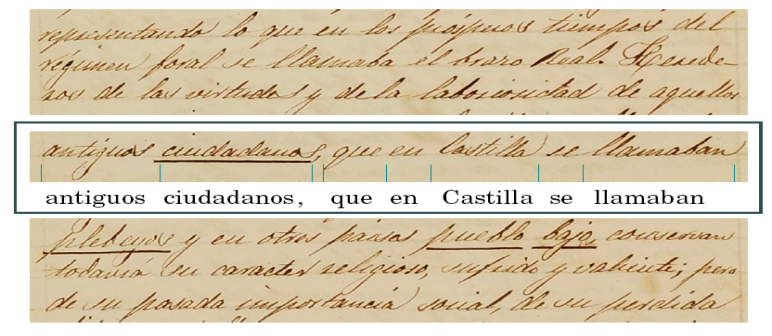 representando lo que en los prósperos tiempos del
régimen foral se llamaba el brazo Real. Herede-
ros de las virtudes y de la laboriosidad de aquellos
antiguos ciudadanos, que en Castilla se llamaban
antiguos ciudadanos, que en Castilla se llamaban
plebeyos y en otros paises pueblo bajo, conservan
todavia su caracter religioso, sufrido y valiente; pero
de su pasada importancia social, de su perdida